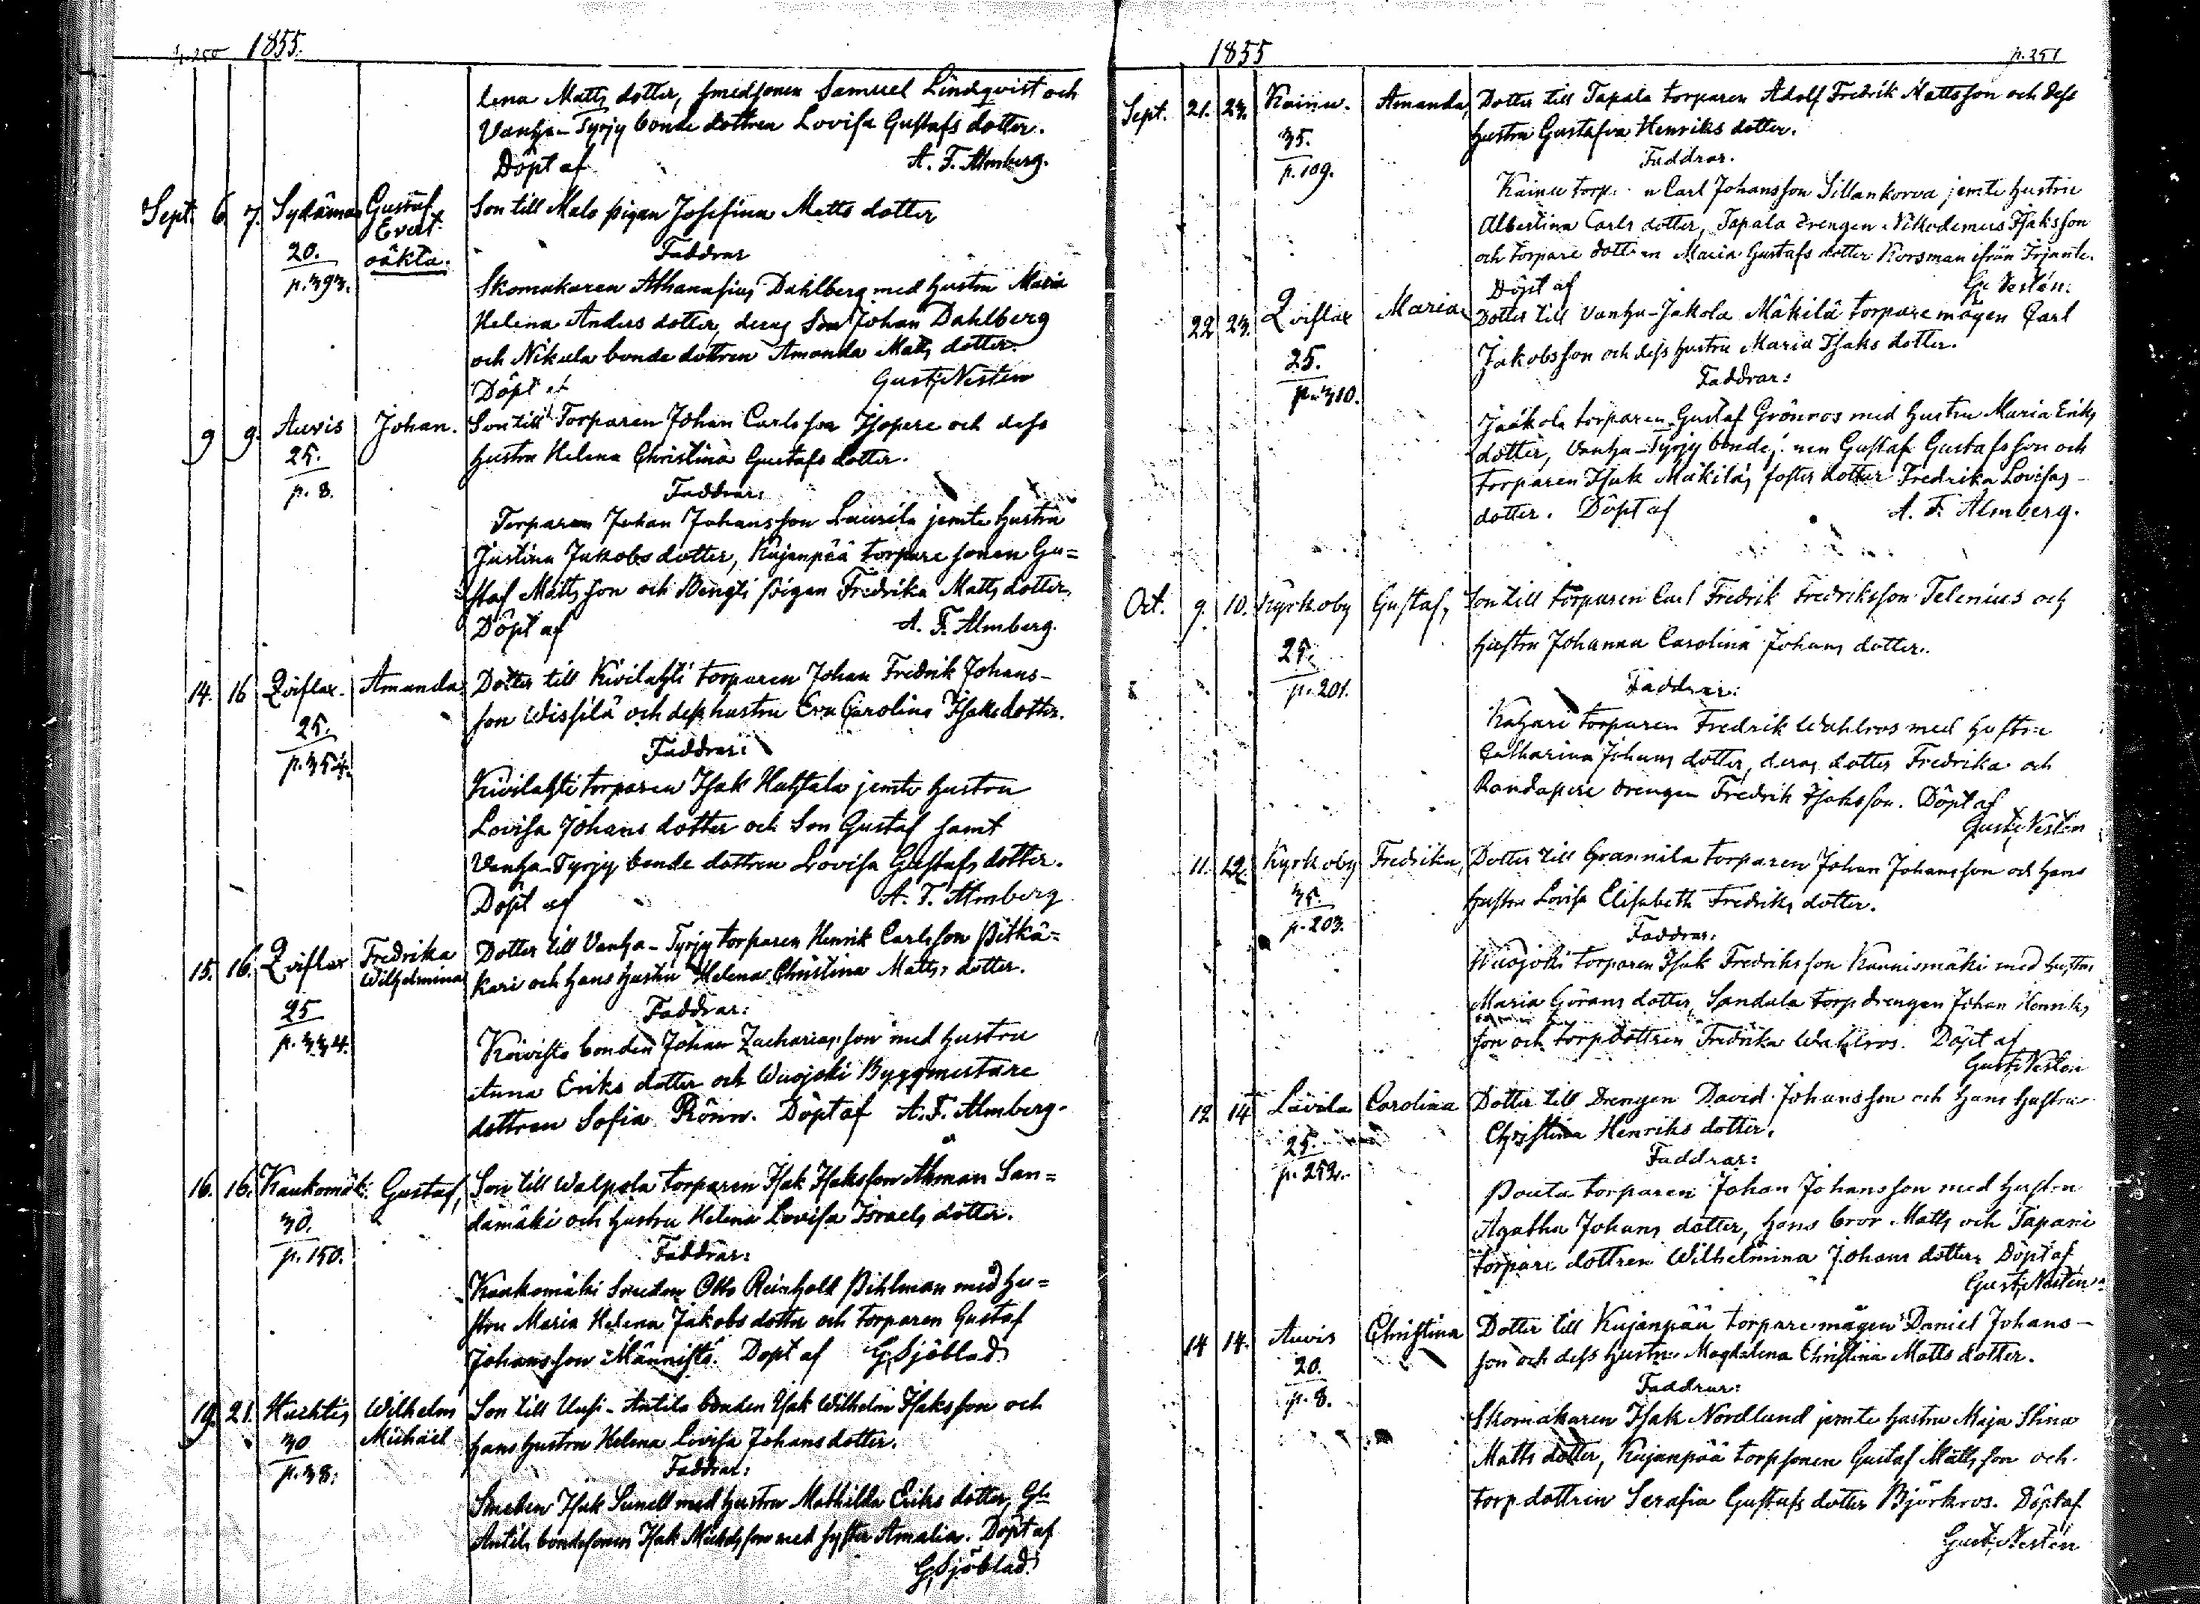 p. 250 1855.
lena Matts dotter, smedsonen Samuel Lindqvist och
Vanha-Tyrjy bonde dottren Lovisa Gustafs dotter.
Döpt af A. F. Almberg.
Sept. 6 7. Sydänmaa Gustaf Son till Malo pigan Josefina Matts dotter
Evert.
20. oäkta. Faddrar
p. 393.
Skomakaren Athanasius Dahlberg med hustru Maria
Helena Anders dotter, deras Son Johan Dahlberg
och Nikula bonde dottren Amanda Matts dotter.
Döpt af Gust. Nestén
9 9. Auvis Johan. Son till Torparen Johan Carlsson Isopere och dess
25. hustru Helena Christina Gustafs dotter.
p. 8. Faddrar:
Torparen Johan Johansson Laurila jemte hustru
Justina Jakobs dotter, Kujanpää torpare sonen Gu=
staf Mattsson och Bengts pigan Fredrika Matts dotter.
Döpt af A. F. Almberg.
14. 16 Qviflax. Amanda Dotter till Kivilahti torparen Johan Fredrik Johans-
25. son Wissilä och dess hustru Eva Carolina Isaks dotter.
p. 354. Faddrar:
Kivilahti torparen Isak Huhtala jemte hustru
Lovisa Johans dotter och Son Gustaf samt
Vanha-Tyrjy bonde dottren Lovisa Gustafs dotter.
Döpt af A. F. Almberg
15. 16. Qviflax Fredrika Dotter till Vanha-Tyrjy torparen Henrik Carlsson Pitkä=
Wilhelmina kari och hans hustru Helena Christina Matts dotter.
25 Faddrar:
p. 334.
Koivisto bonden Johan Zachariasson med hustru
Anna Eriks dotter och Wuojoki Byggmestare
dottren Sofia Rönn. Döpt af A. F. Almberg.
16. 16. Kaukomäk. Gustaf, Son till Walpola torparen Isak Isaksson Åkman San=
30. damäki och hustru Helena Lovisa Israels dotter.
p. 150. Faddrar:
Kaukomäki Smeden Otto Reinhold Pihlman med hu=
stru Maria Helena Jakobs dotter och torparen Gustaf
Johansson Männistö. Döpt af G. Sjöblad
19. 21. Huhtis Wilhelm Son till Uusi-Antila bonden Isak Wilhelm Isaksson och
30 Michael hans hustru Helena Lovisa Johans dotter.
p. 38. Faddrar:
Smeden Isak Sunell med hustru Mathilda Eriks dotter, Gl.
Antila bondesonen Isak Michelsson med syster Amalia. Döpt af
G. Sjöblad.
1855 p. 251
Sept. 21. 23. Kainu. Amanda, Dotter till Tapala torparen Adolf Fredrik Mattsson och dess
35. hustru Gustafva Henriks dotter.
p. 109. Faddrar.
Kainu torp. n Carl Johansson Sillankorva jemte hustru
Albertina Carls dotter, Tapala drengen Nikodemus Isaksson
och torpare dottren Maria Gustafs dotter Korsman ifrån Irjanne.
Döpt af G. Nestén.
22 23. Qviflax Maria, Dotter till Vanha-Jakola Mäkilä torpare mågen Carl
25. Jakobsson och dess hustru Maria Isaks dotter.
p. 310. Faddrar:
Jaakola torparen Gustaf Grönros med hustru Maria Eriks
dotter, Vanha-Tyrjy bonde nen Gustaf Gustafsson och
torparen Isak Mäkiläs foster dotter Fredrika Lovisas-
dotter. Döpt af A. F. Almberg.
Oct. 9. 10. Kyrkoby Gustaf, Son till torparen Carl Fredrik Fredriksson Telenius och
25. hustru Johanna Carolina Johans dotter.
p. 201. Faddrar:
Kahari torparen Fredrik Wahlros med hustru
Catharina Johans dotter, deras dotter Fredrika och
drengen Fredrik Isaksson. Döpt af
Gust. Nestén
11. 12. Kyrkoby Fredrika, Dotter till Grannila torparen Johan Johansson och hans
35. hustru Lovisa Elisabeth Fredriks dotter.
p. 203. Faddrar:
Wuojoki torparen Isak Fredriksson Kännismäki med hustru
Maria Görans dotter, Sandala torpdrengen Johan Henriks
son och torpdottren Fredrika Wahlros. Döpt af
Gust. Nestén
12 14 Lavila Carolina Dotter till Drengen David Johansson och hans hustru
25. Christina Henriks dotter.
p. 252. Faddrar:
Pouta torparen Johan Johansson med hustru
Agatha Johans dotter, hans bror Matts och Tapani
torpare dottren Wilhelmina Johans dotter. Döpt af
Gust. Nestén.
14 14. Auvis Christina Dotter till Kujanpää torpare mågen Daniel Johans-
20. son och dess hustru Magdalena Christina Matts dotter.
p. 8. Faddrar:
Skomakaren Isak Nordlund jemte hustru Maja Stina
Matts dotter, Kujanpää torpsonen Gustaf Mattsson och
torpdottren Serafia Gustafs dotter Björkros. Döpt af
Gust. Nestén